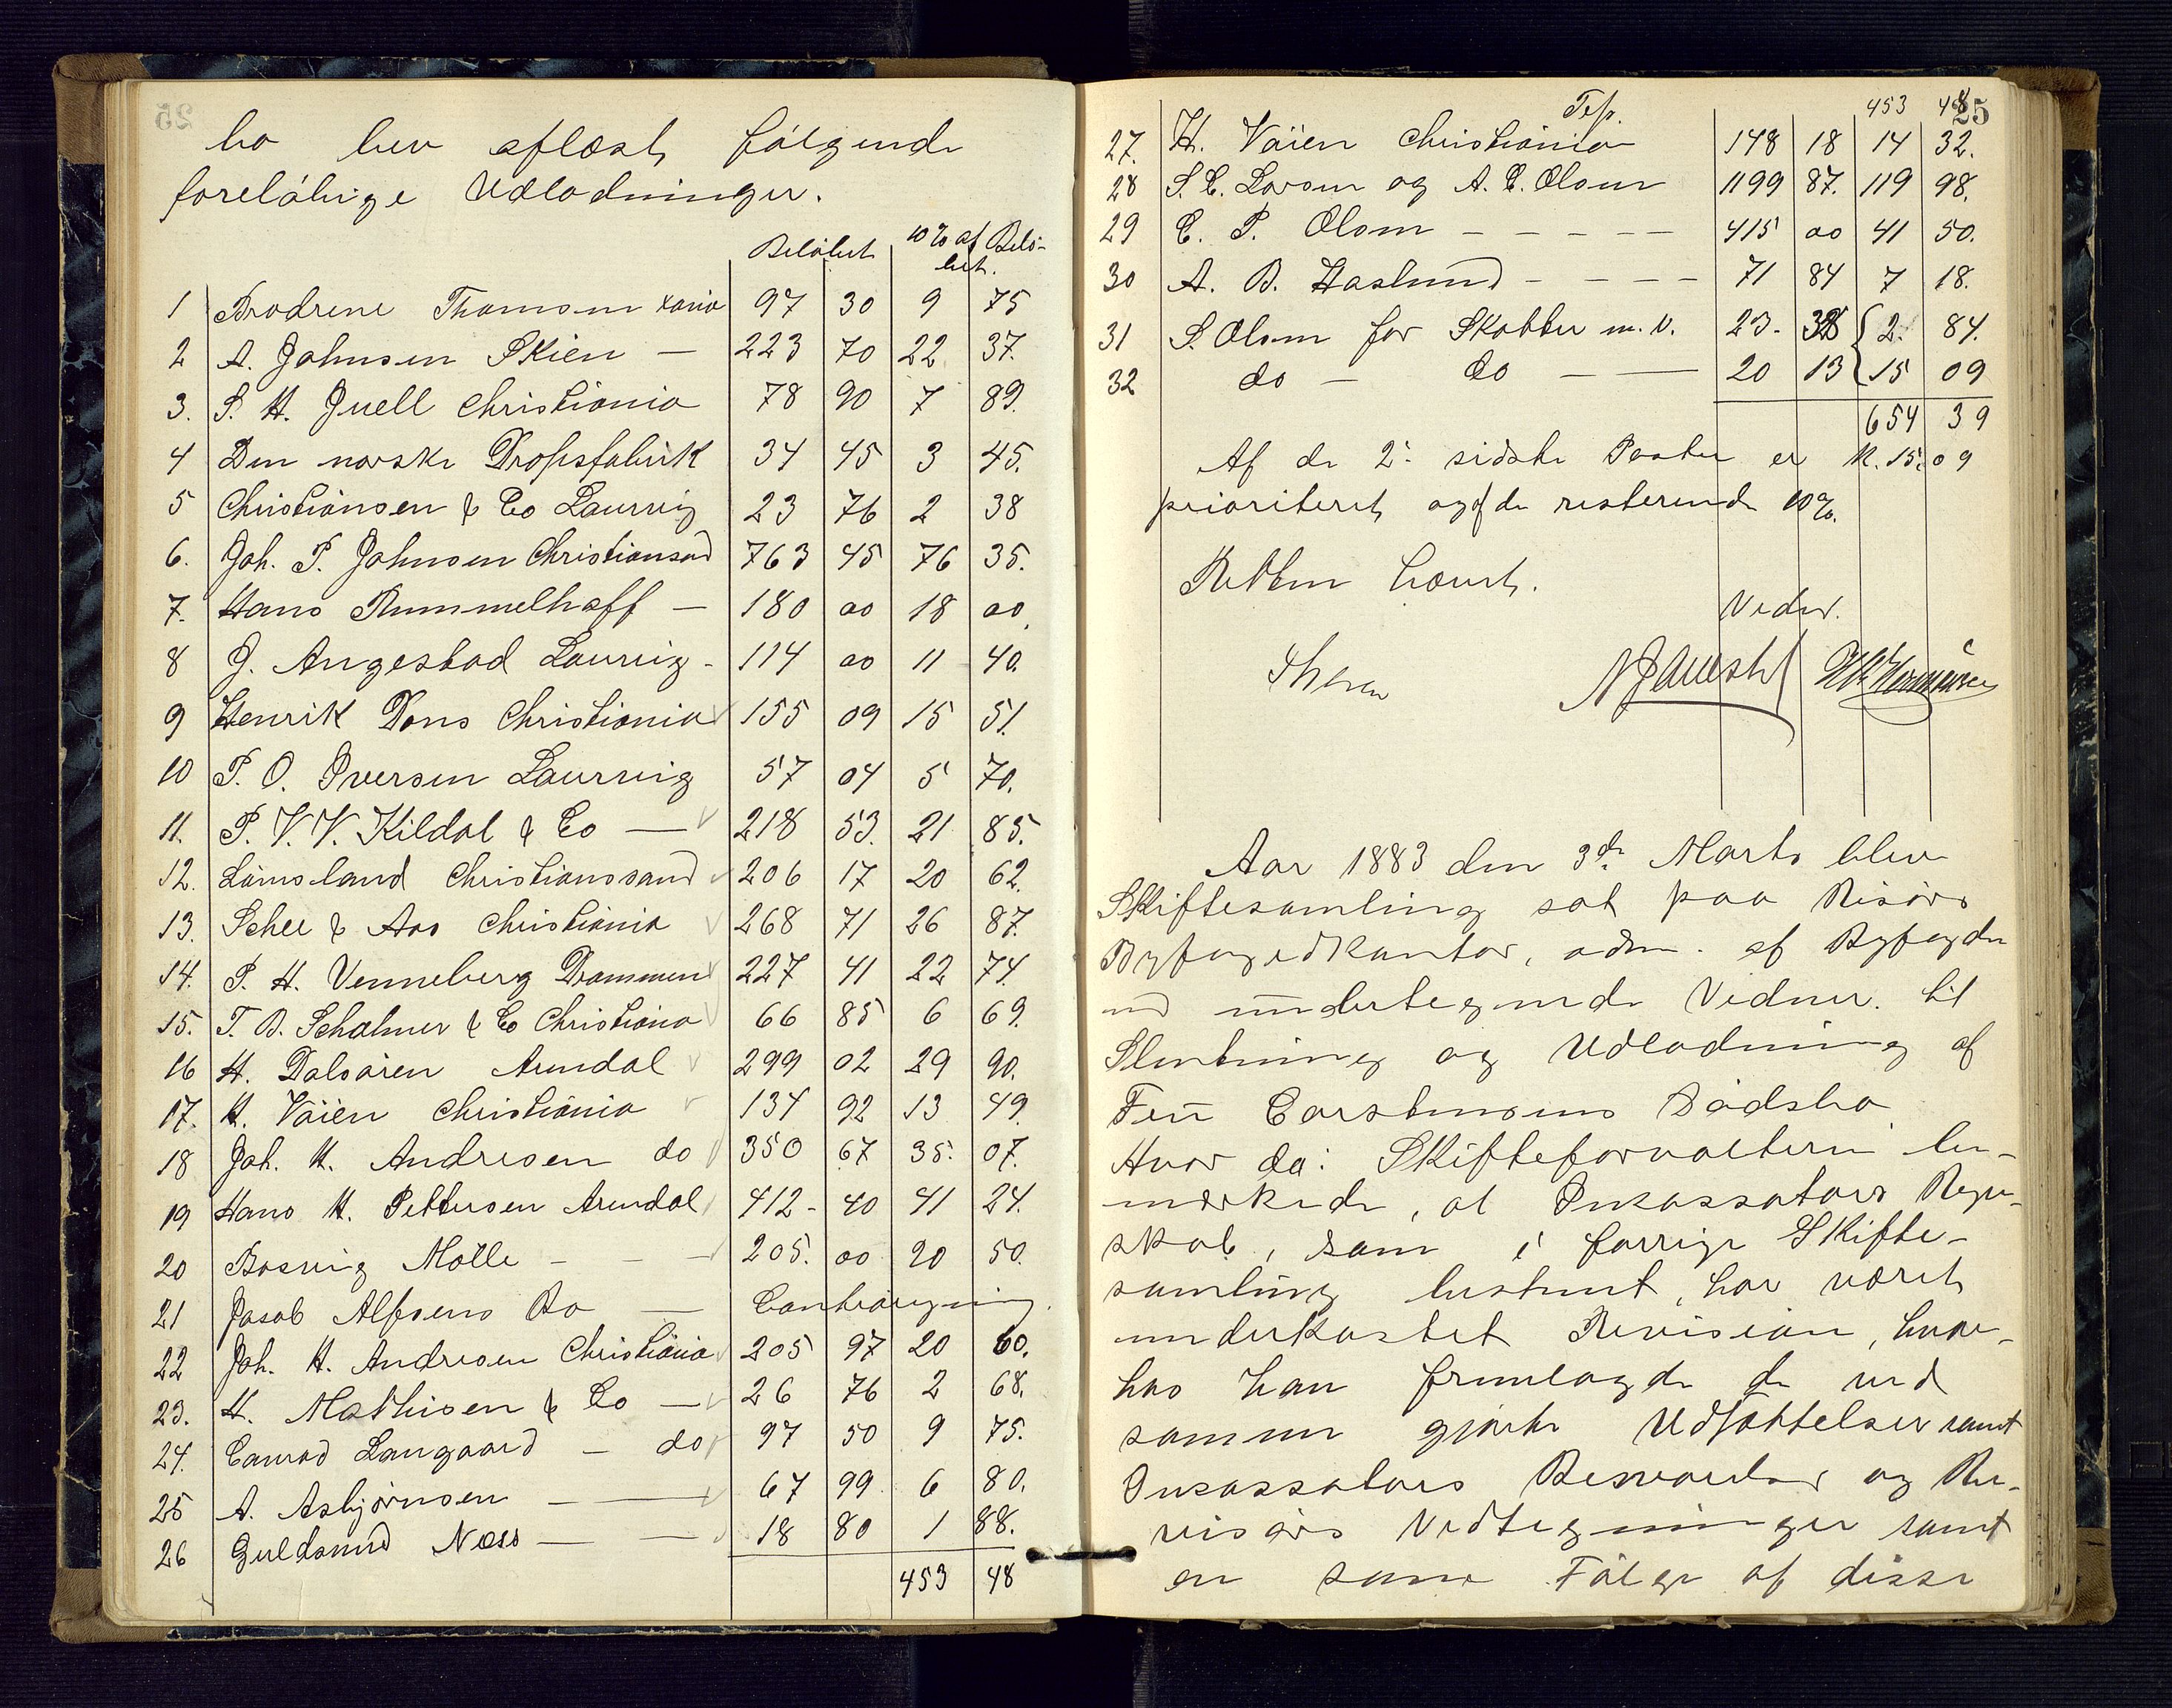 bo blev aflæst følgende
foreløbige Udlodninger.
Beløbet 10% af Belø-
bet.
1 Brødrene Thomsen Xania 97 30 9 75
2 A. Johnsen Skien — 223 70 22 37.
3. S. H. Juell Christiania 78 90 7 89.
4 Den norske Dropsfabrik 34 45 3 45.
5 Christiansen & Co Laurvig 23 76 2 38
6. Joh. P. Johnsen Christiansand 763 45 76 35.
7. Hans Rummelhoff — 180 00 18 00.
8 J. Angestad Laurvig - 114 00 11 40.
9 Henrik Dons Christiania 155 09 15 51.
10 P. O. Iversen Laurvig 57 04 5 70.
11. P. V. V. Kildal & Co — 218 53. 21 85.
12. Lømsland Christianssand 206 17 20 62.
13. Schee & Aas Christiania 268 71 26 87.
14. P. H. Venneberg Drammen 227 41 22 74.
15. T. B. Schalmer & Co Christiania 66 85 6 69.
16 H. Dalsøren Arendal 299 02 29 90.
17. H. Vøien Christiania 134 92 13 49.
18 Joh. H. Andresen do 350 67 35. 07.
19 Hans H. Pettersen Arendal 412 - 40 41 24.
20 Bosvig Mølle - - 205. 00 20 50.
21 Jacob Alfsens Bo — Contrasøgning.
22 Joh. H. Andresen Christiania 205 97 20 60.
23. H. Mathisen & Co — 26 76 2 68.
24. Conrad Langaard — do 97 50 9 75.
25 A. Asbjørnsen — 67 99 6 80.
26 Guldsmed Næss — 18 80 1 88.
453 48
25
Tsp. 453 48
27. H. Vøien Christiania 148 18 14 32.
28 S. C. Larsen og A. C. Olsen 1199 87. 119 98.
29 C. P. Olsen - - - - - 415 00 41 50.
30 A. B. Haslund - - - - 71 84 7 18.
31 S. Olsen for Skatter m. v. 23. 38 { 2. 84.
32 do — do — 20 13 { 15 09
654 39
Af de 2: sidste Poster er K. 15.09
prioriteret og af de resterende 10%.
Retten hævet.
Vidner.
Aar 1883 den 3de Marts blev
Skiftesamling sat paa Risørs
Byfogedkontor, adm. af Byfogden
med undertegnede Vidner. til
Slutning og Udlodning af
Fru Carstensens Dødsbo
Hvor da: Skifteforvalteren be-
mærkede, at Incassators Regn-
skab, som i forrige Skifte-
samling bestemt, har været
underkastet Revision, hvor-
hos han fremlagde de ved
samme gjorte Udsættelser samt
Incassators Besvarelser og Re-
visors Vedtegninger samt
en som Følge af disse